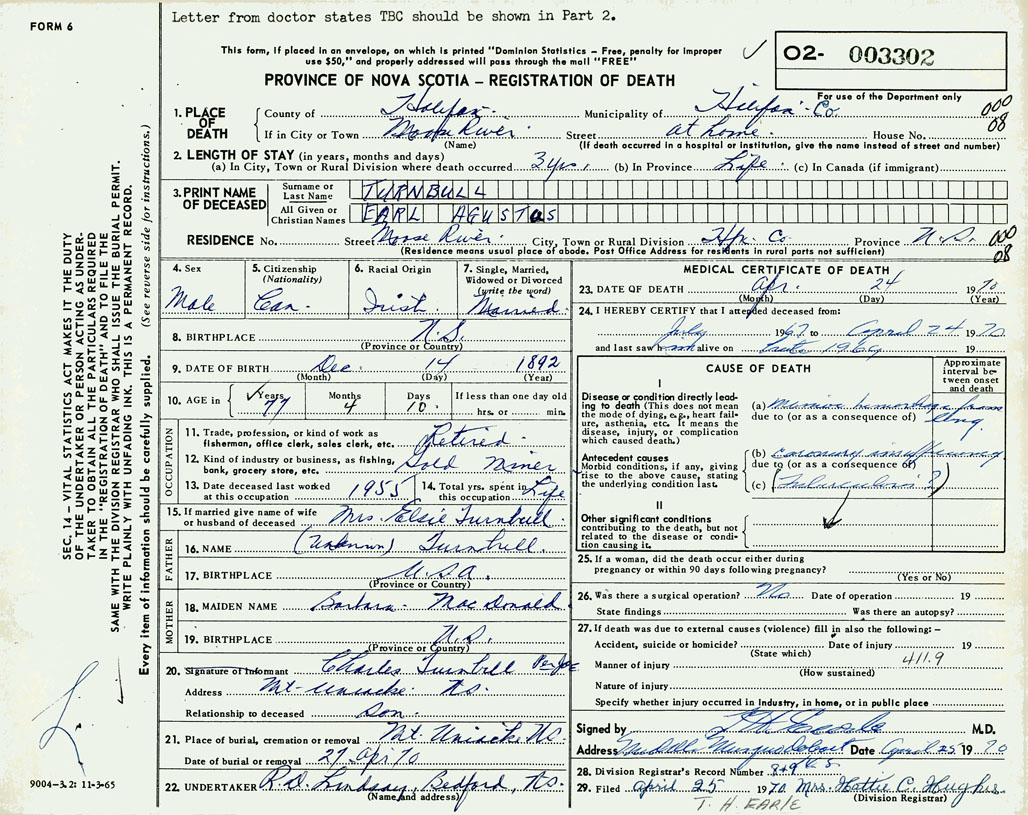 Letter from doctor states TBC should be shown in Part 2.
FORM 6
This form, if placed in an envelope, on which is printed "Dominion Statistics – Free, penalty for improper
use $50," and properly addressed will pass through the mail "FREE"
02- 003302
PROVINCE OF NOVA SCOTIA – REGISTRATION OF DEATH
For use of the Department only
1. PLACE OF DEATH
County of Halifax Municipality of Halifax Co. 000
If in City or Town Moose River Street at home. House No. 08
(Name) (If death occurred in a hospital or institution, give the name instead of street and number)
2. LENGTH OF STAY (in years, months and days)
(a) In City, Town or Rural Division where death occurred 3 yrs. (b) In Province Life (c) In Canada (if immigrant)
3. PRINT NAME OF DECEASED
Surname or Last Name TURNBULL
All Given or Christian Names EARL AGUSTAS
RESIDENCE No. Street Moose River City, Town or Rural Division Hfx Co Province N.S. 000
(Residence means usual place of abode. Post Office Address for residents in rural parts not sufficient) 08
4. Sex Male
5. Citizenship (Nationality) Can.
6. Racial Origin Irish
7. Single, Married, Widowed or Divorced (write the word) Married
8. BIRTHPLACE N.S.
(Province or Country)
9. DATE OF BIRTH Dec. 14 1892
(Month) (Day) (Year)
10. AGE in Years 77 Months 4 Days 10 If less than one day old hrs. or min.
OCCUPATION
11. Trade, profession, or kind of work as fisherman, office clerk, sales clerk, etc. Retired
12. Kind of industry or business, as fishing, bank, grocery store, etc. Gold Miner
13. Date deceased last worked at this occupation 1955
14. Total yrs. spent in this occupation Life
15. If married give name of wife or husband of deceased Mrs. Elsie Turnbull
FATHER
16. NAME (Unknown) Turnbull
17. BIRTHPLACE U.S.A.
(Province or Country)
MOTHER
18. MAIDEN NAME Barbara MacDonald
19. BIRTHPLACE N.S.
(Province or Country)
20. Signature of Informant Charles Turnbull Per
Address Mt-Uniacke. NS.
Relationship to deceased son
21. Place of burial, cremation or removal Mt. Uniacke NS
Date of burial or removal 27 Apr 70
22. UNDERTAKER R.D. Lindsay, Bedford, NS.
(Name and address)
MEDICAL CERTIFICATE OF DEATH
23. DATE OF DEATH Apr. 24 1970
(Month) (Day) (Year)
24. I HEREBY CERTIFY that I attended deceased from:
July 1967 to April 24 1970
and last saw h alive on 1969 19
CAUSE OF DEATH
Approximate interval between onset and death
I
Disease or condition directly leading to death (This does not mean the mode of dying, e.g., heart failure, asthenia, etc. It means the disease, injury, or complication which caused death.)
(a) Massive hemorrhage from lung.
due to (or as a consequence of)
Antecedent causes
Morbid conditions, if any, giving rise to the above cause, stating the underlying condition last.
(b) coronary insufficiency
due to (or as a consequence of)
(c) (Tuberculosis?)
II
Other significant conditions contributing to the death, but not related to the disease or condition causing it.
25. If a woman, did the death occur either during pregnancy or within 90 days following pregnancy?
(Yes or No)
26. Was there a surgical operation? No Date of operation 19
State findings Was there an autopsy?
27. If death was due to external causes (violence) fill in also the following: –
Accident, suicide or homicide? Date of injury 19
(State which) 411.9
Manner of injury
(How sustained)
Nature of injury
Specify whether injury occurred in industry, in home, or in public place
Signed by M.D.
Address Middle Musquodoboit Date April 25 1970
28. Division Registrar's Record Number
29. Filed April 25 1970 Mrs. Hattie C. Hughes
(Division Registrar)
T. H. EARLE
SEC. 14 – VITAL STATISTICS ACT MAKES IT THE DUTY
OF THE UNDERTAKER OR PERSON ACTING AS UNDER-
TAKER TO OBTAIN ALL THE PARTICULARS REQUIRED
IN THE "REGISTRATION OF DEATH" AND TO FILE THE
SAME WITH THE DIVISION REGISTRAR WHO SHALL ISSUE THE BURIAL PERMIT.
WRITE PLAINLY WITH UNFADING INK. THIS IS A PERMANENT RECORD.
Every item of information should be carefully supplied. (See reverse side for instructions.)
9004-3.2: 11-3-65